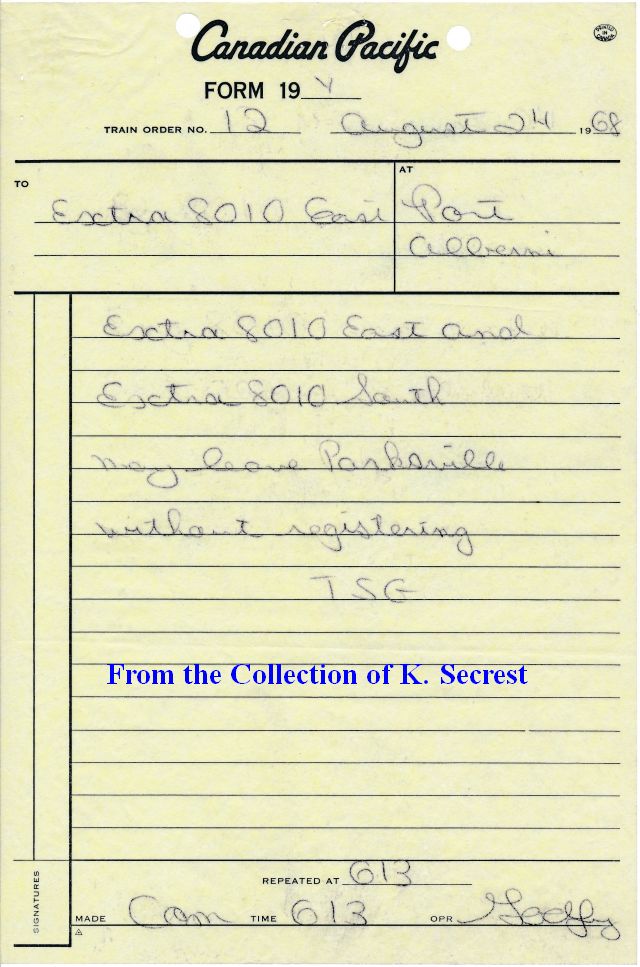 Canadian Pacific
PRINTED IN CANADA
FORM 19 Y
TRAIN ORDER NO. 12 August 24 1968
TO AT
Extra 8010 East Port
Alberni
Extra 8010 East and
Extra 8010 South
may leave Parksville
without registering
TSG
From the Collection of K. Secrest
REPEATED AT 613
SIGNATURES
MADE Com TIME 613 OPR